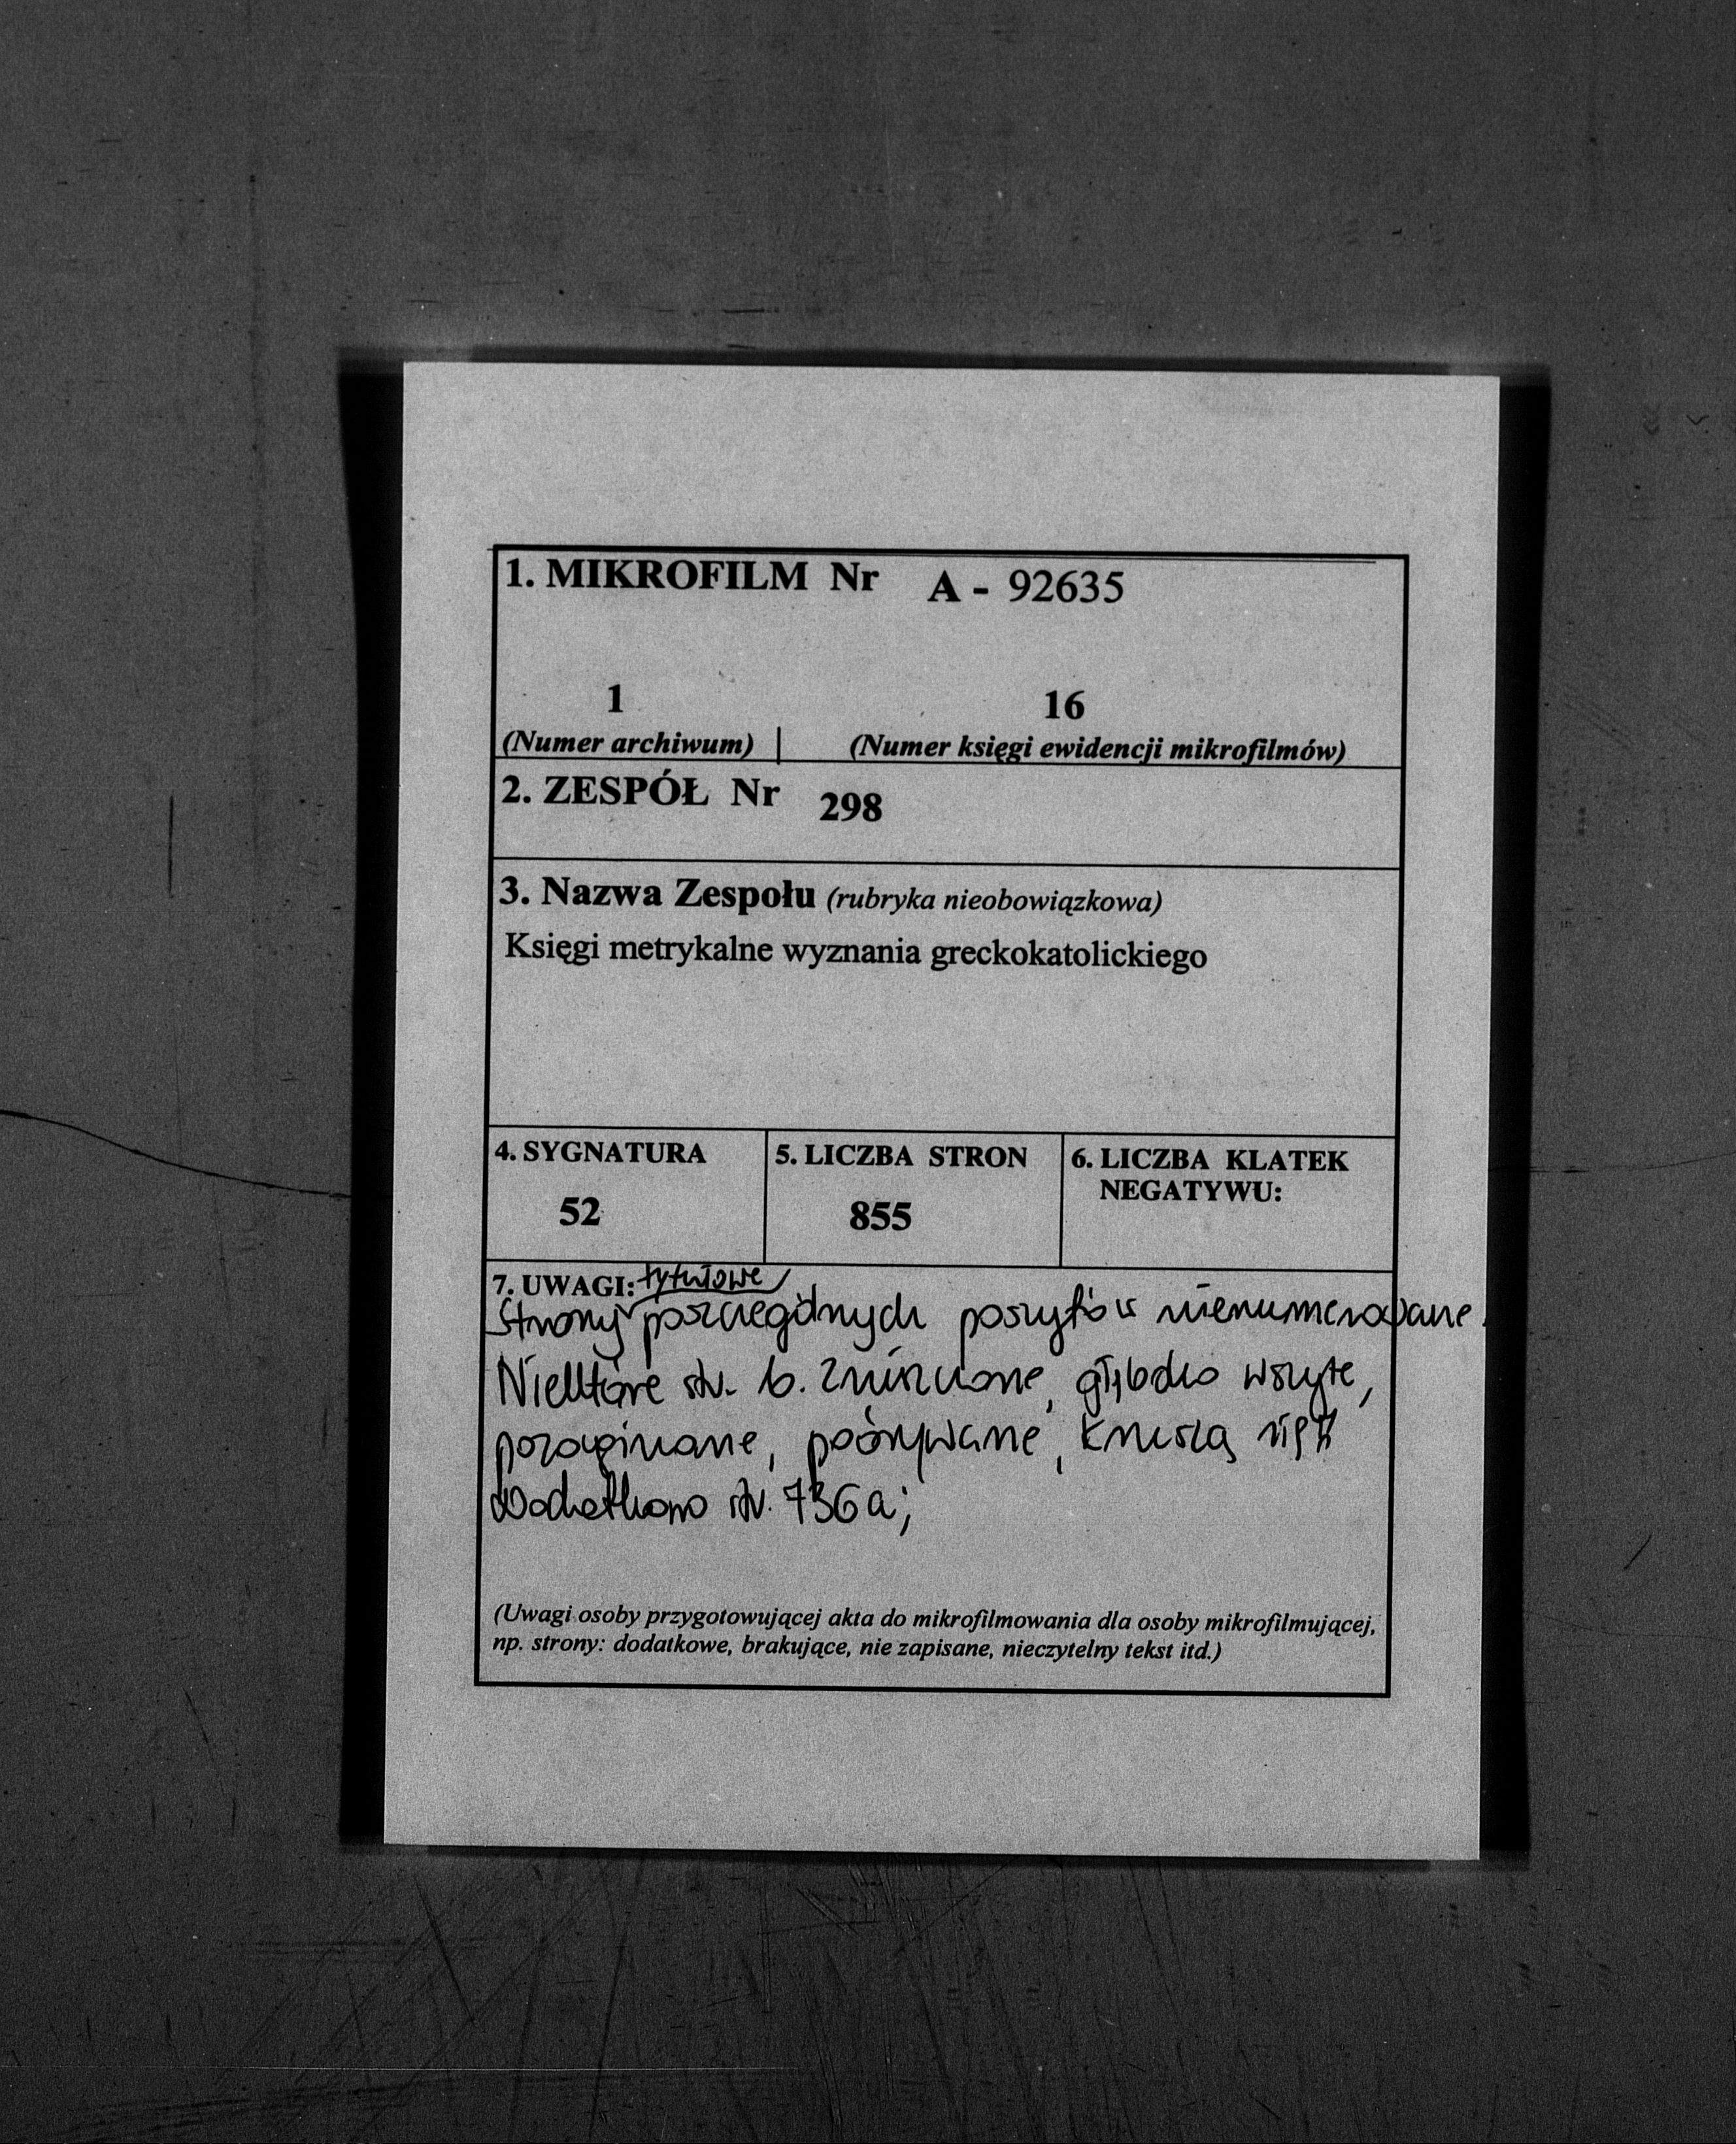 1. MIKROFILM Nr A - 92635
1 16
(Numer archiwum) (Numer księgi ewidencji mikrofilmów)
2. ZESPÓŁ Nr 298
3. Nazwa Zespołu (rubryka nieobowiązkowa)
Księgi metrykalne wyznania greckokatolickiego
4. SYGNATURA
52
5. LICZBA STRON
855
6. LICZBA KLATEK
NEGATYWU:
7. UWAGI: tytułowe
Strony poszczególnych poszytów nienumerowane.
Niektóre str. b. zniszczone, głęboko wszyte,
pozaginane, poobrywane, kruszą się
Dodatkowo str. 736a;
(Uwagi osoby przygotowującej akta do mikrofilmowania dla osoby mikrofilmującej,
np. strony: dodatkowe, brakujące, nie zapisane, nieczytelny tekst itd.)